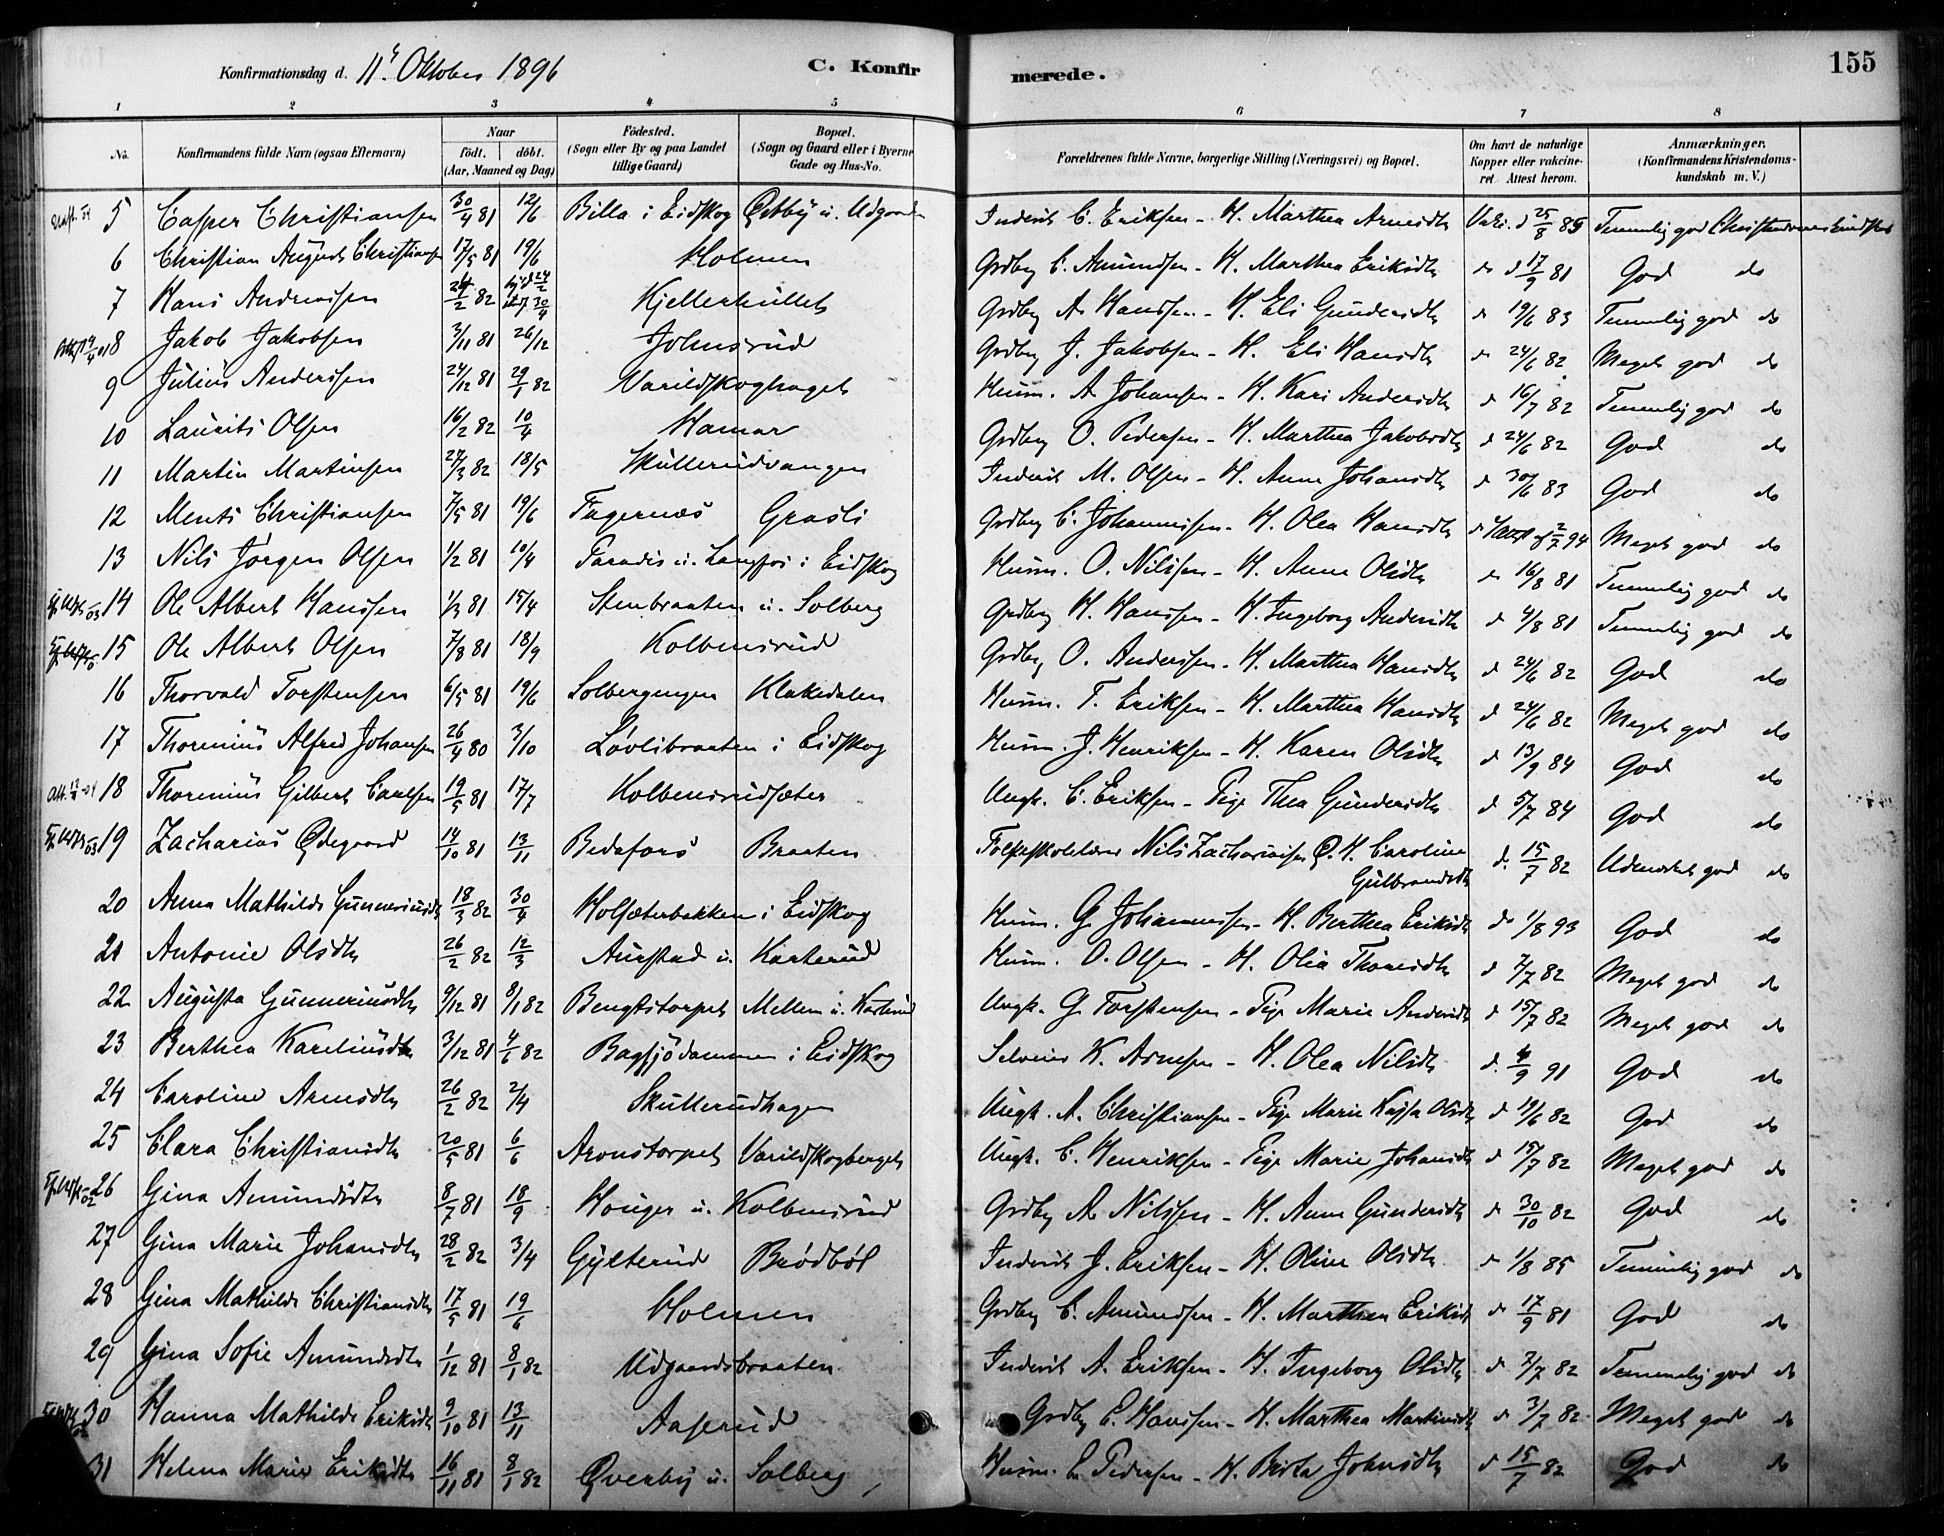 Konfirmationsdag d. 11te Oktober 1896 C. Konfirmerede. 155
1 2 3 4 5 6 7 8
No. Konfirmandens fulde Navn (ogsaa Efternavn) Naar födt. döbt. (Aar, Maaned og Dag) Födested. (Sogn eller By og paa Landet tillige Gaard) Bopæl. (Sogn og Gaard eller i Byerne Gade og Hus-No. Forældrenes fulde Navne, borgerlige Stilling (Næringsvei) og Bopæl. Om havt de naturlige Kopper eller vakcineret. Attest herom. Anmærkninger. (Konfirmandens Kristendomskundskab m. V.)
5 Casper Christiansen 30/4 81 12/6 Billa i Eidskog Östby u. Udgaarden Inderst C. Eriksen - H. Marthea Arnesdtr Vaki. d 25/8 85 Temmelig god Christendomskundskab
6 Christian August Christiansen 17/5 81 19/6 Holmen Grdbr C. Amundsen - H. Marthea Eriksdtr do d 17/9 81 God do
7 Hans Andreassen 2/2 82 30/4 Kjellerhullet Grdbr A. Hanssen - H. Eli Gundersdtr d 19/6 83 Temmelig god do
8 Jakob Jakobsen 3/11 81 26/12 Johnsrud Grdbr J. Jakobsen - H. Eli Hansdtr d 24/6 82 Meget god do
9 Julius Anderssen 24/12 81 29/1 82 Varildskoghaget Husm. A Johansen - H. Kari Andersdtr d 16/7 82 Temmelig god do
10 Laurits Olsen 16/2 82 10/4 Hamar Grdbr O. Pedersen - H. Marthea Jakobsdtr d 24/6 82 God do
11 Martin Martinsen 27/3 82 18/5 Skullerudvangen Inderst M. Olsen - H. Anne Johansdtr d 30/6 83 God do
12 Ments Christiansen 7/5 81 19/6 Fagernæs Grasli Grdbr C. Johannessen - H. Olea Hansdtr d 2/7 94 Meget god do
13 Nils Jörgen Olsen 1/2 81 10/4 Paradis u. Langfos i Eidskog Husm. O. Nilssen - H. Anne Olsdtr d 16/8 81 Temmelig god do
14 Ole Albert Hanssen 1/3 81 15/4 Stenbraaten u. Solberg Grdbr H. Hanssen - H. Ingeborg Andersdtr d 4/8 81 Temmelig god do
15 Ole Albert Olsen 7/8 81 18/9 Kolbensrud Grdbr O. Anderssen - H. Marthea Hansdtr d 24/6 82 God do
16 Thorvald Torstensen 6/5 81 19/6 Solbergengen Klakedalen Husm. T. Eriksen - H. Marthea Hansdtr d 24/6 82 Meget god do
17 Thorenius Alfred Johansen 26/4 80 3/10 Lövlibraaten i Eidskog Husm. J. Henriksen - H. Karen Olsdtr d 13/9 84 God do
18 Thorenius Gilbert Carlsen 19/5 81 17/7 Kolbensrudsæter Ungk. C. Eriksen - Pige Thea Gundersdtr d 5/7 84 God do
19 Zacharias Ödegaard 14/10 81 13/11 Bedafors Braaten Folkeskolelærer Nils Zachariassen Ö. H. Caroline Gulbrandsdtr d. 15/7 82 Udmærket god do
20 Anna Mathilde Gunneriusdtr 18/3 82 30/4 Holsæterbakken i Eidskog Husm. G Johannessen - H. Berthea Eriksdtr do 1/8 93 God do
21 Antonie Olsdtr 26/2 82 12/3 Aurstad u. Karterud Husm. O. Olsen - H. Olea Thoresdtr d 7/7 82 Meget god do
22 Augusta Gunneriusdtr 9/12 81 8/1 82 Bengtstorpet Mellem u. Karterud Ungk. G Torstensen - Pige Marie Andersdtr d 15/7 82 Meget god do
23 Berthea Kareliusdtr 3/12 81 4/6 82 Bagsjödammen i Eidskog Selveier K. Arnesen - H. Olea Nilsdtr d. 4/9 91 God do
24 Caroline Arnesdtr 26/2 82 2/4 Skullerudhagen Ungk. A. Christiansen - Pige Marie Kajsa Olsdtr d 19/6 82 God do
25 Clara Christiansdtr 20/5 81 6/6 Aronstorpet Varildskogberget Ungk. C. Henriksen - Pige Marie Johansdtr d 15/7 82 Meget god do
26 Gina Amundsdtr 8/7 81 18/9 Houger u. Kolbensrud Grdbr A. Nilssen - H. Anne Gundersdtr d 30/10 82 God do
27 Gina Marie Johansdtr 28/2 82 3/4 Gylterud Brödböl Inderst J. Eriksen - H. Oline Olsdtr d 1/8 85 Temmelig god do
28 Gina Mathilde Christiansdtr 17/5 81 19/6 Holmen Grdbr C. Amundsen - H. Marthea Eriksdtr d 17/9 81 God do
29 Gina Sofie Amundsdtr 1/12 81 8/1 82 Udgaardsbraaten Inderst A. Eriksen - H. Ingeborg Olsdtr d 7/7 82 Temmelig god do
30 Hanna Mathilde Eriksdtr 9/10 81 13/11 Aaserud Grdbr E. Hanssen - H. Marthea Martinsdtr d 3/7 82 Meget god do
31 Helena Marie Eriksdtr 16/11 81 8/1 82 Överby u. Solberg Husm. E. Pedersen - H. Berta Johnsdtr d 15/7 82 God do